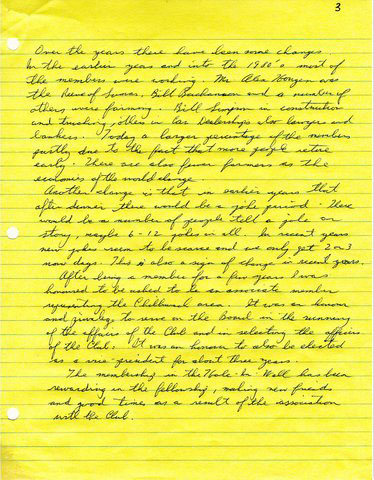 3
Over the years there have been some changes
In the earlier years and into the 1980's most of
the members were working. Mr. Alex was
the Reeve of Bill Buchanan and a number of
others were farming. Bill in construction
and trucking, others in Car Dealerships also lawyers and
bankers. Today a larger percentage of the members
partly due to the fact that more people retire
early. There are also fewer farmers as the
economies of the world change
Another change is that in earlier years that
after dinner there would be a joke period. There
would be a number of people tell a joke or
story, maybe 6-12 jokes in all. In recent years
new jokes seem to be scarce and we only get 2 or 3
now days. This is also a sign of change in recent years.
After being a member for a few years I was
honoured to be asked to be an associate member
representing the Chilliwack area. It was an honour
and privilege to serve on the Board in the running
of the affairs of the Club and in selecting the
of the Club. It was an honour to also be elected
as a vice-president for about three years.
The membership in the Hole-In-Wall has been
rewarding in the fellowship, making new friends
and good times as a result of the association
with the Club.